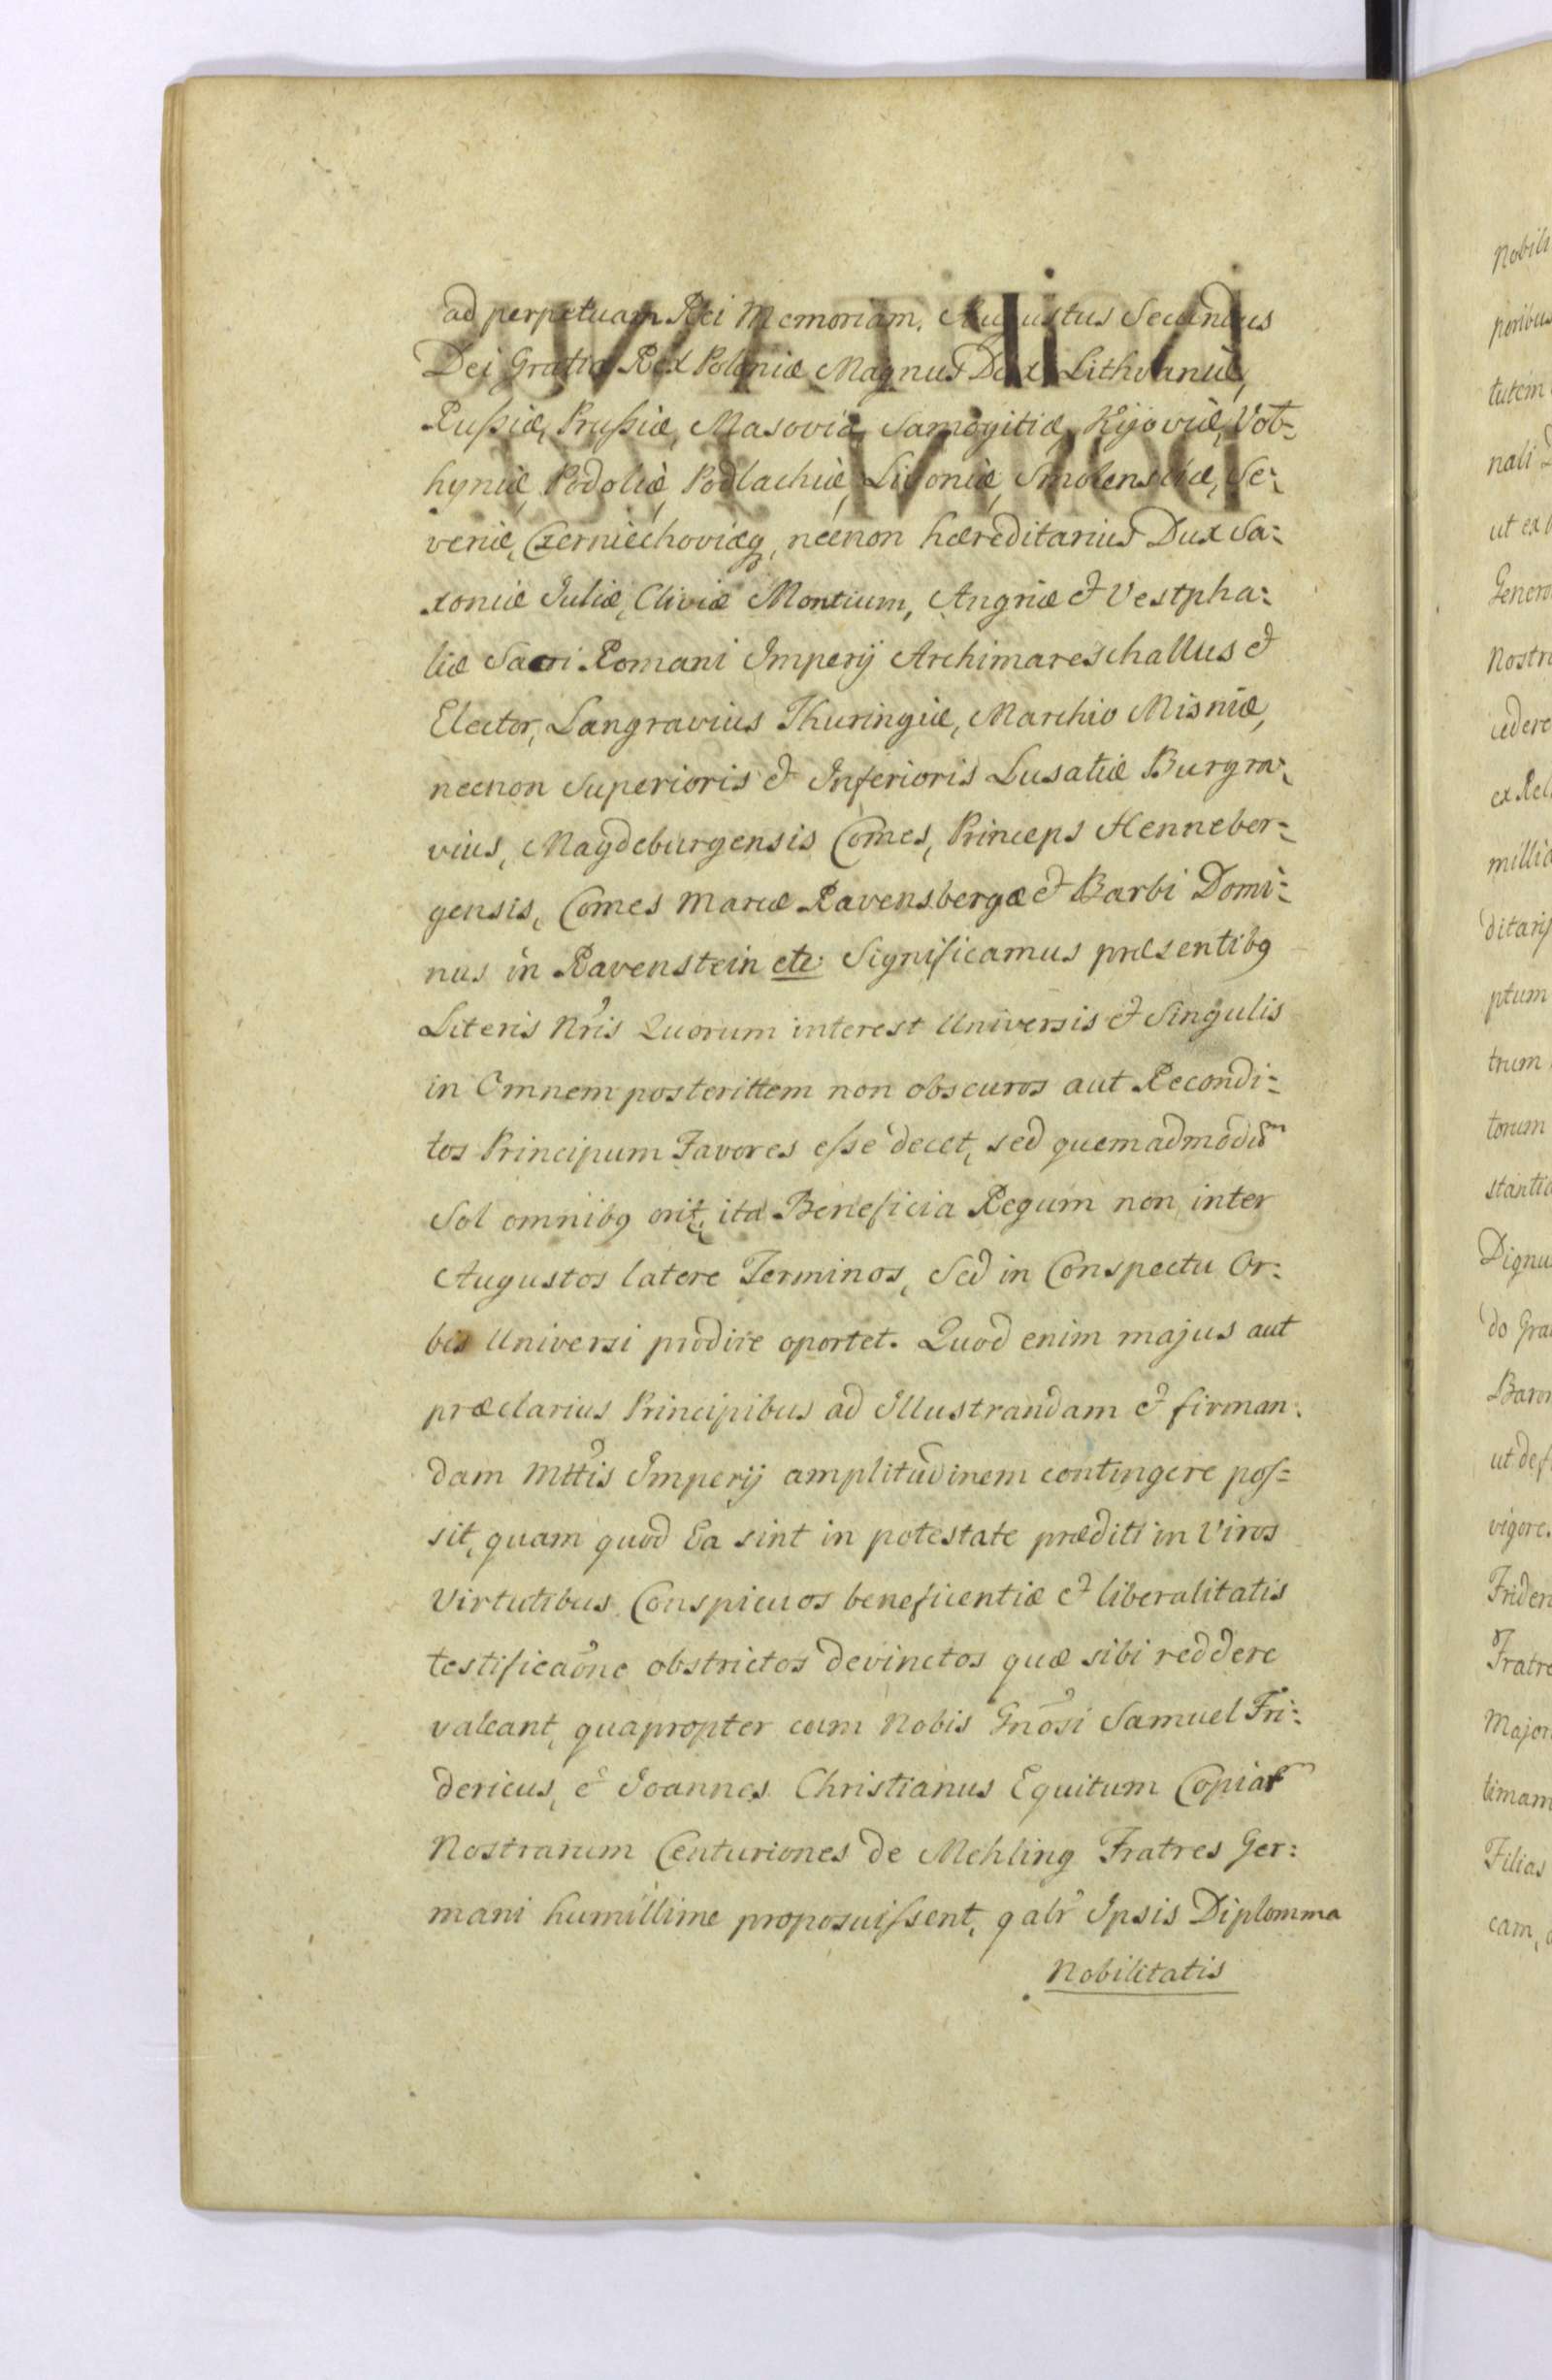 ad perpetuam Rei Memoriam. Augustus Secundus
Dei Gratia Rex Poloniæ Magnus Dux Lithvaniæ,
Rußiæ, Prußiæ, Masoviæ Samogitiæ, Kijoviæ, Vol-
hyniæ, Podoliæ, Podlachiæ, Livoniæ, Smolensciæ, Se:
veriæ, Czerniechoviæq, necnon hæreditarius Dux Sa:
xoniæ Juliæ, Cliviæ Montium, Angriæ & Vestpha:
liæ Sacri Romani Imperij Archimareschallus &
Elector, Langravius Thuringiæ, Marchio Misniæ,
necnon Superioris & Inferioris Lusatiæ Burgra:
vius, Magdeburgensis Comes, Princeps Henneber-
gensis, Comes Marcæ Ravensbergæ & Barbi Domi:
nus in Ravenstein etc: Significamus præsentibq
Literis Nris Quorum interest Universis & Singulis
in Omnem posterittem non obscuros aut Recondi:
tos Principum Favores eße decet, sed quemadmodū
Sol omnibq orit, ita Beneficia Regum non inter
Augustos latere Terminos, Sed in Conspectu Or:
bis Universi prodire oportet. Quod enim majus aut
præclarius Principibus ad Illustrandam & firman:
dam Mttis Imperij amplitudinem contingere pos=
sit, quam quod Ea sint in potestate præditi in Viros
Virtutibus Conspicuos beneficentiæ & liberalitatis
testificaone obstrictos devinctos quæ sibi reddere
valeant, quapropter cum Nobis Gnosi Samuel Fri:
dericus, & Joannes Christianus Equitum Copiar
Nostrarum Centuriones de Mehling Fratres Ger:
mani humillime proposuißent, qalr Ipsis Diplomma
Nobilitatis